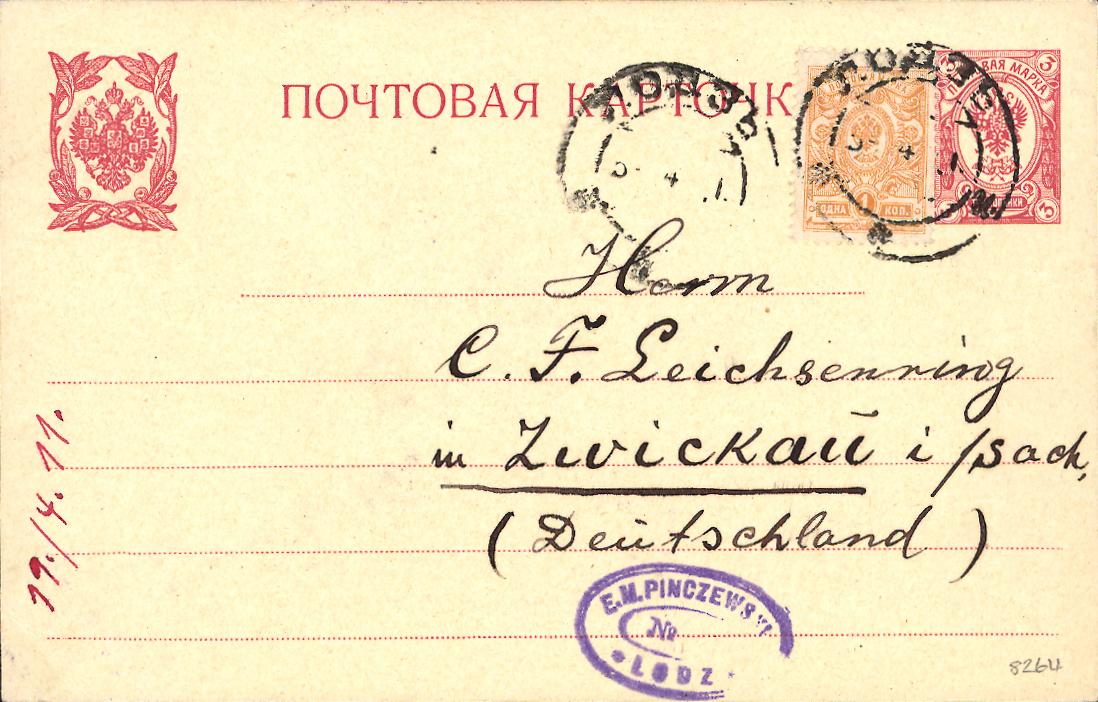 ПОЧТОВАЯ КАРТОЧКА
ЛОДЗЬ
4
ЛОДЗЬ
4
ОДНА 1 КОП.
МАРКА
3
3
Herrn
C. F. Leichsenring
in Zwickau i/Sach,
(Deutschland)
19./4. 11.
E.M.PINCZEWSKI
№
LODZ
8264